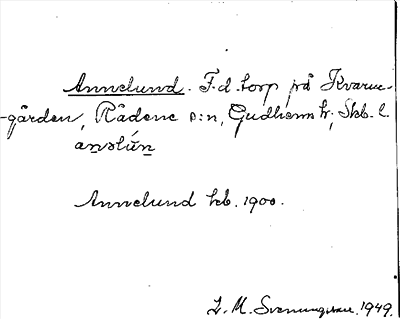 Annelund. F.d. torp på Kvarn-
-gården, Rådene s:n, Gudhems hd, Skb. l.
Annelund hb. 1900.
L. M. Svenungsson. 1949.